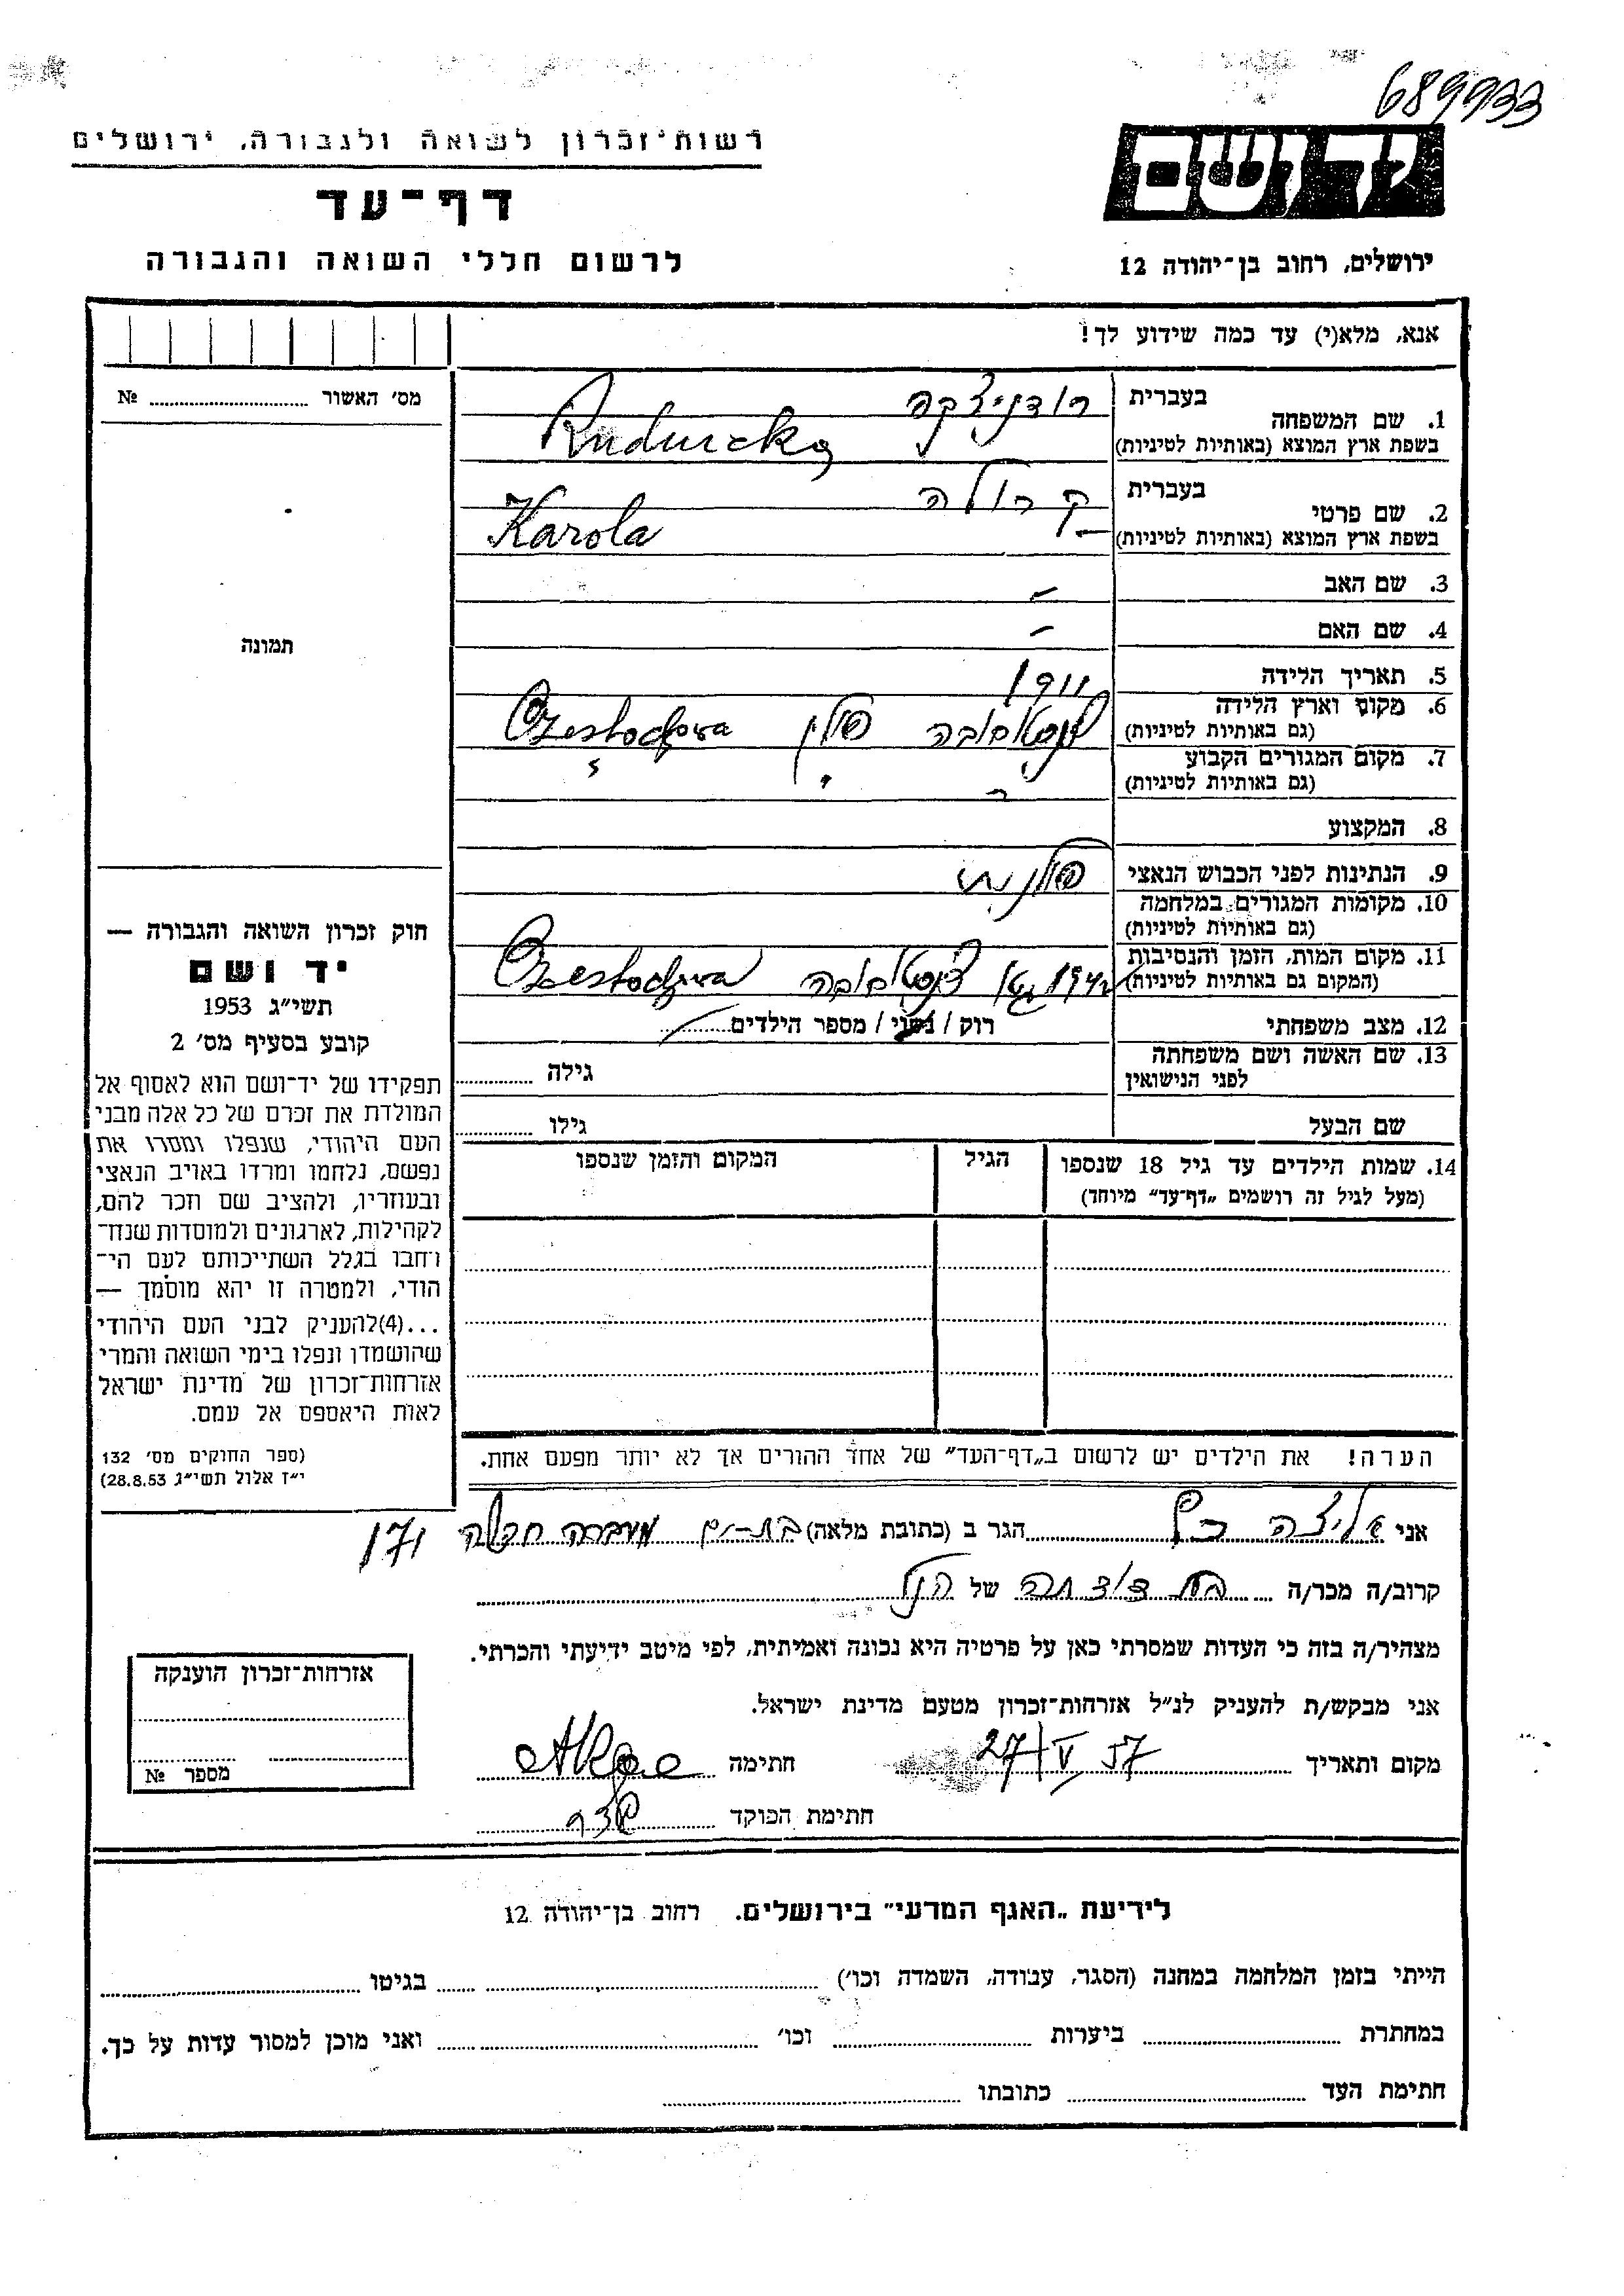 689933
יד ושם
רשות־זכרון לשואה ולגבורה, ירושלים
דף־עד
לרשום חללי השואה והגבורה
ירושלים, רחוב בן־יהודה 12
אנא, מלא(י) עד כמה שידוע לך!
מס׳ האשור ........ №
תמונה
1. שם המשפחה
בעברית רודניצקה
בשפת ארץ המוצא (באותיות לטיניות) Rudnicka
2. שם פרטי
בעברית קרולה
בשפת ארץ המוצא (באותיות לטיניות) Karola
3. שם האב –
4. שם האם –
5. תאריך הלידה 1911
6. מקום וארץ הלידה
(גם באותיות לטיניות) צ'נסטוכובה פולין Czestochowa
7. מקום המגורים הקבוע
(גם באותיות לטיניות)
8. המקצוע
9. הנתינות לפני הכבוש הנאצי פולנית
10. מקומות המגורים במלחמה
(גם באותיות לטיניות)
11. מקום המות, הזמן והנסיבות
(המקום גם באותיות לטיניות) 1942 גטו צ'נסטוכובה Czestochowa
12. מצב משפחתי רוק / נשוי / מספר הילדים........
13. שם האשה ושם משפחתה גילה ........
לפני הנישואין
שם הבעל גילו ........
14. שמות הילדים עד גיל 18 שנספו הגיל המקום והזמן שנספו
(מעל לגיל זה רושמים „דף־עד״ מיוחד)
הערה! את הילדים יש לרשום ב„דף־העד״ של אחד ההורים אך לא יותר מפעם אחת.
חוק זכרון השואה והגבורה —
יד ושם
תשי״ג 1953
קובע בסעיף מס׳ 2
תפקידו של יד־ושם הוא לאסוף אל
המולדת את זכרם של כל אלה מבני
העם היהודי, שנפלו ומסרו את
נפשם, נלחמו ומרדו באויב הנאצי
ובעוזריו, ולהציב שם וזכר להם,
לקהילות, לארגונים ולמוסדות שנח־
רבו בגלל השתייכותם לעם הי־
הודי, ולמטרה זו יהא מוסמך —
...(4)להעניק לבני העם היהודי
שהושמדו ונפלו בימי השואה והמרי
אזרחות־זכרון של מדינת ישראל
לאות היאספם אל עמם.
(ספר החוקים מס׳ 132
י״ז אלול תשי״ג 28.8.53)
אני עליזה כץ הגר ב (כתובת מלאה) בת-ים מעברה 171
קרוב/ה מכר/ה בת דודתה של הנ״ל
מצהיר/ה בזה כי העדות שמסרתי כאן על פרטיה היא נכונה ואמיתית, לפי מיטב ידיעתי והכרתי.
אני מבקש/ת להעניק לנ״ל אזרחות־זכרון מטעם מדינת ישראל.
מקום ותאריך 27/V 57 חתימה
חתימת הפוקד
אזרחות־זכרון הוענקה
מספר №
לידיעת „האגף המדעי״ בירושלים. רחוב בן־יהודה 12
הייתי בזמן המלחמה במחנה (הסגר, עבודה, השמדה וכו׳) ........ בגיטו ........
במחתרת ........ ביערות ........ וכו׳ ........ ואני מוכן למסור עדות על כך.
חתימת העד ........ כתובתו ........